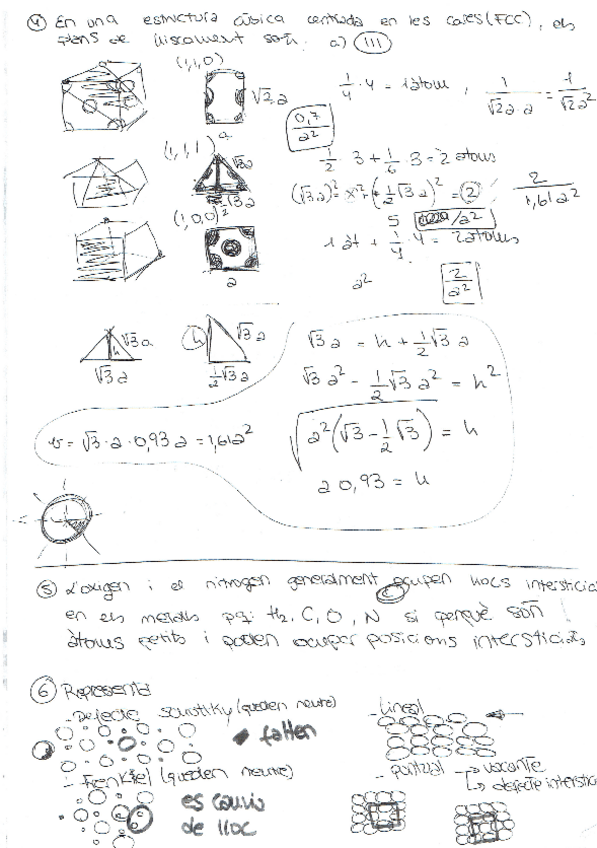 ④ En una estructura cúbica centrada en les cares (FCC), els
plans de lliscament són: a) (111)
(1,1,0)
√2 a
1/4 · 4 = 1 àtom , 1/(√2 a · a) = 1/(√2 a²)
0,7/a²
a
(1,1,1)
√3 a
√3 a
1/2 · 3 + 1/6 · 3 = 2 àtoms
2/(1,61 a²)
(1,0,0)
a
1 àt + 1/4 · 4 = 2 àtoms
a²
2/a²
h
√3 a
√3 a
h
√3 a
1/2 √3 a
√3 a = h + 1/2 √3 a
√3 a² - 1/2 √3 a² = h²
√(a² (√3 - 1/2 √3)) = h
a 0,93 = h
= √3 · a · 0,93 a = 1,61 a²
⑤ L'oxigen i el nitrogen generalment ocupen llocs intersticia
en els metalls pq: H₂, C, O, N si perquè són
àtoms petits i poden ocupar posicions intersticials
⑥ Representa
- Defecte Schottky (queden neutre)
falten
- Lineal
- Frenkel (queden neutre)
es canvia
de lloc
- puntual → vacante
↳ defecte intersticia